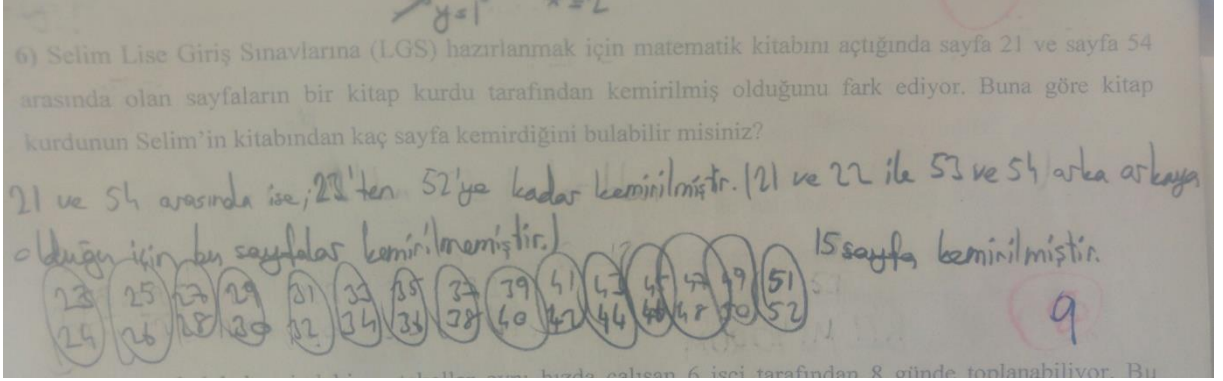 y=1
6) Selim Lise Giriş Sınavlarına (LGS) hazırlanmak için matematik kitabını açtığında sayfa 21 ve sayfa 54
arasında olan sayfaların bir kitap kurdu tarafından kemirilmiş olduğunu fark ediyor. Buna göre kitap
kurdunun Selim'in kitabından kaç sayfa kemirdiğini bulabilir misiniz?
21 ve 54 arasında ise, 23'ten 52'ye kadar kemirilmiştr. (21 ve 22 ile 53 ve 54 arka arkaya
olduğu için bu sayfalar kemirilmemiştir.) 15 sayfa kemirilmiştir.
23 25 27 29 31 33 35 37 39 41 43 45 47 49 51
24 26 28 30 32 34 36 38 40 42 44 46 48 50 52
9
çalışan 6 işçi tarafından 8 günde toplanabiliyor. Bu